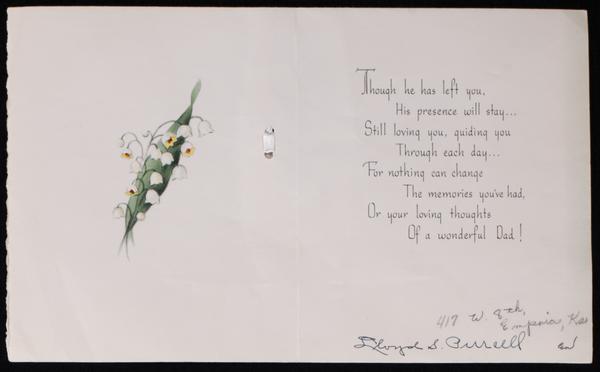 Though he has left you,
His presence will stay...
Still loving you, guiding you
Through each day...
For nothing can change
The memories you've had,
Or your loving thoughts
Of a wonderful Dad!
417 W. 8th,
Emporia, Kas
Lloyd S. Purcell and